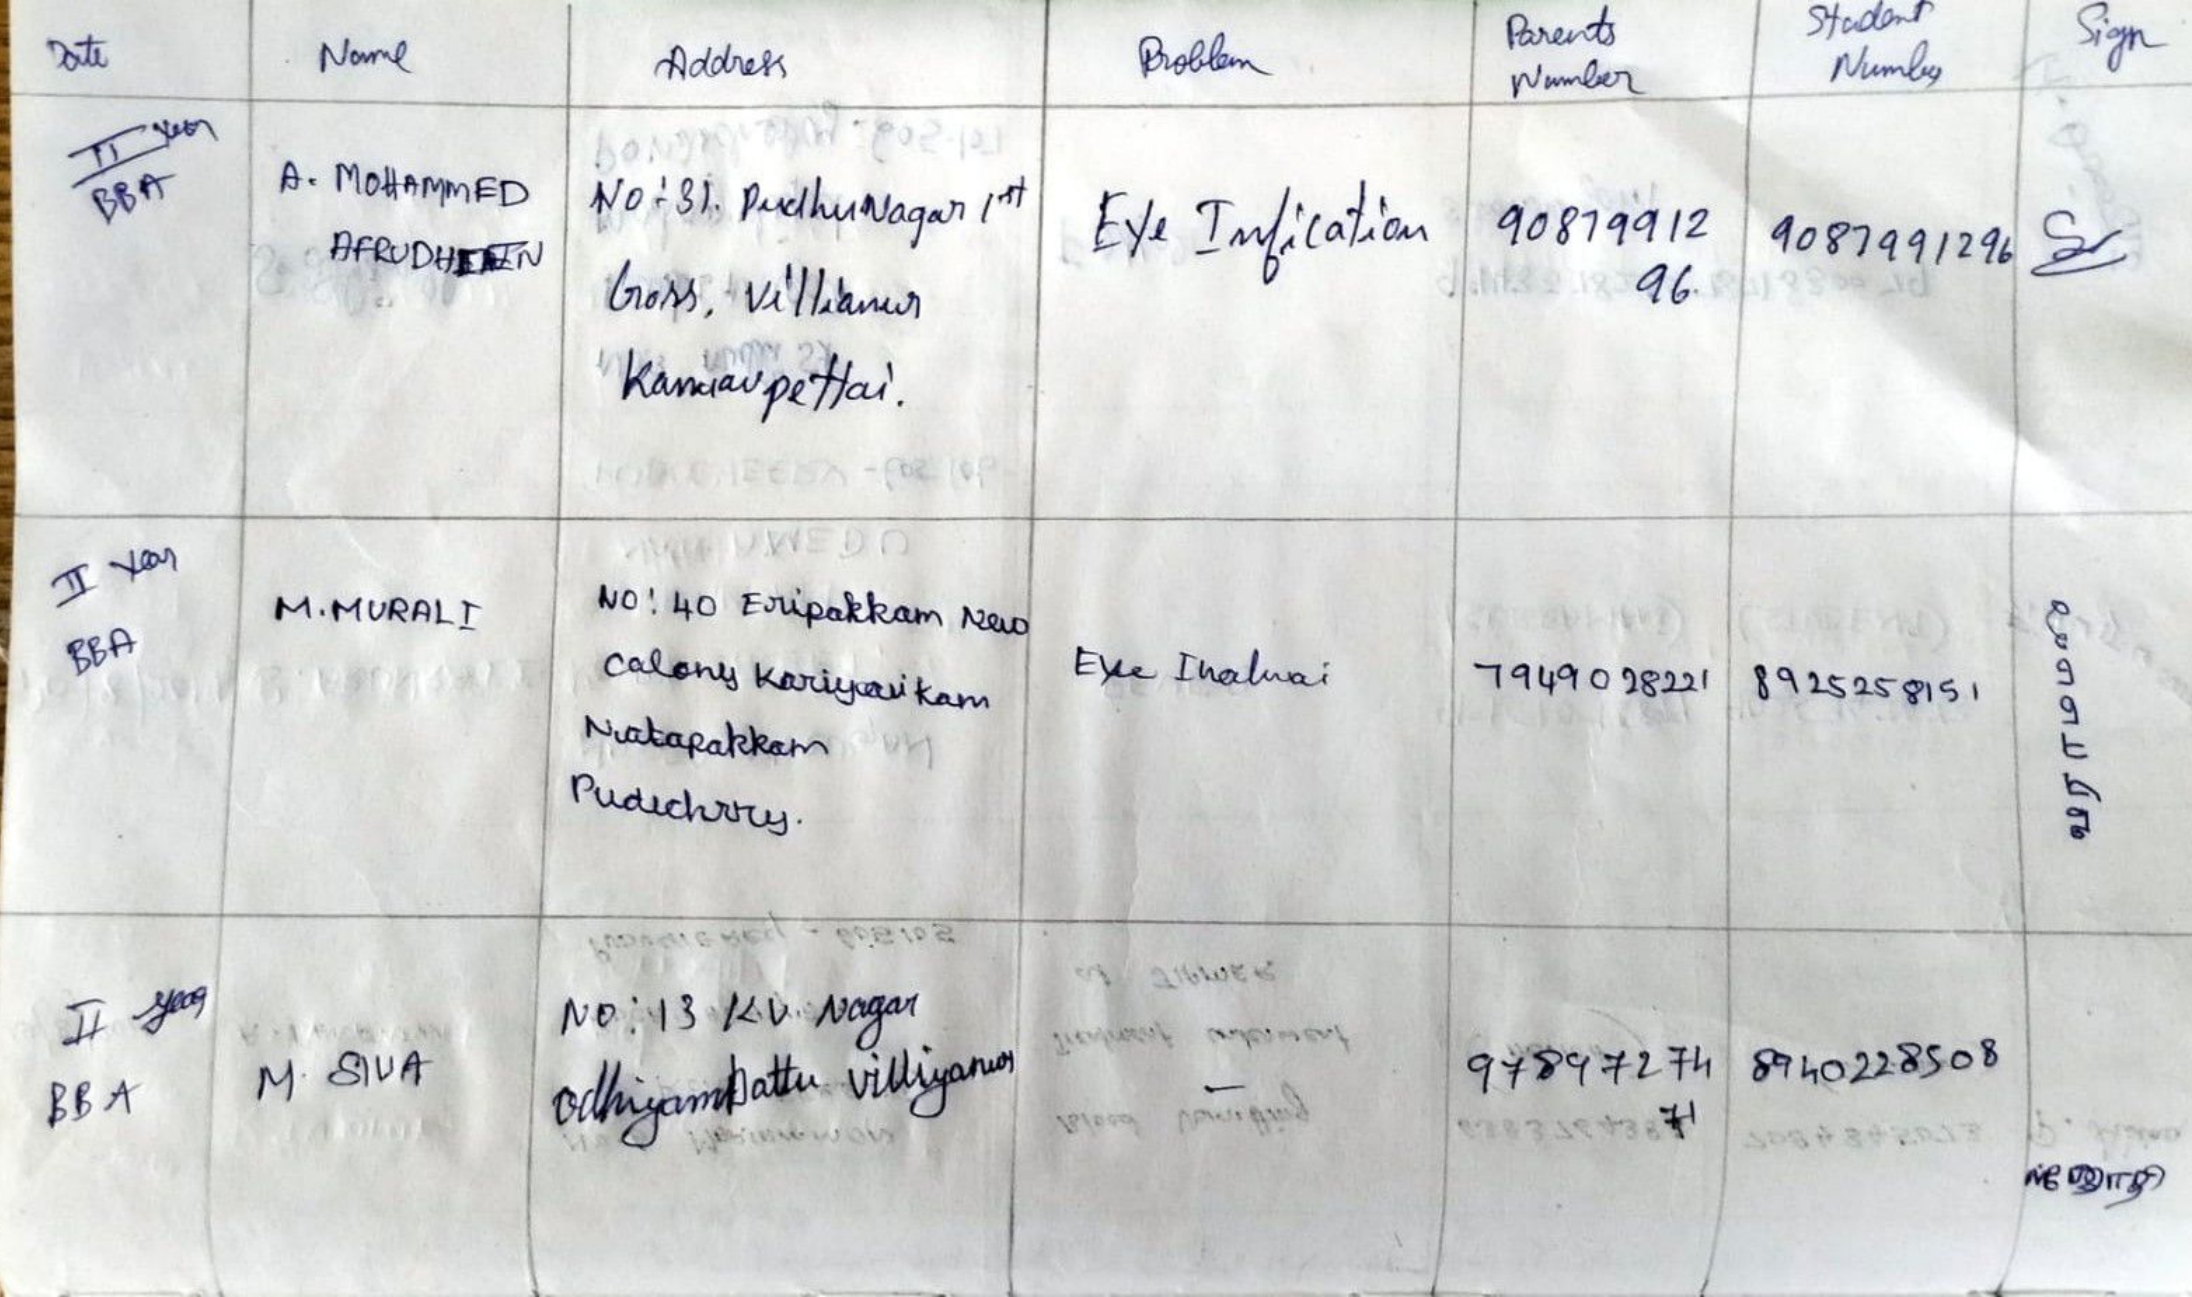 Date Name Address Problem Parents Number Student Number Sign
II year
BBA
A. MOHAMMED
AFRUDHEEN
No: 31. Pudhu Nagar 1st
Cross, Villianur
Kanuavpettai.
Eye Infication
90879912
96.
9087991296
II Year
BBA
M. MURALI
NO: 40 Eripakkam New
Calony Kariyavikam
Natapakkam
Puducherry.
Eye
7949028221
8925258151
II year
BBA
M. SIVA
No: 13 K.V. Nagar
odhiyampattu villiyanur
—
97897274
71
8940228508